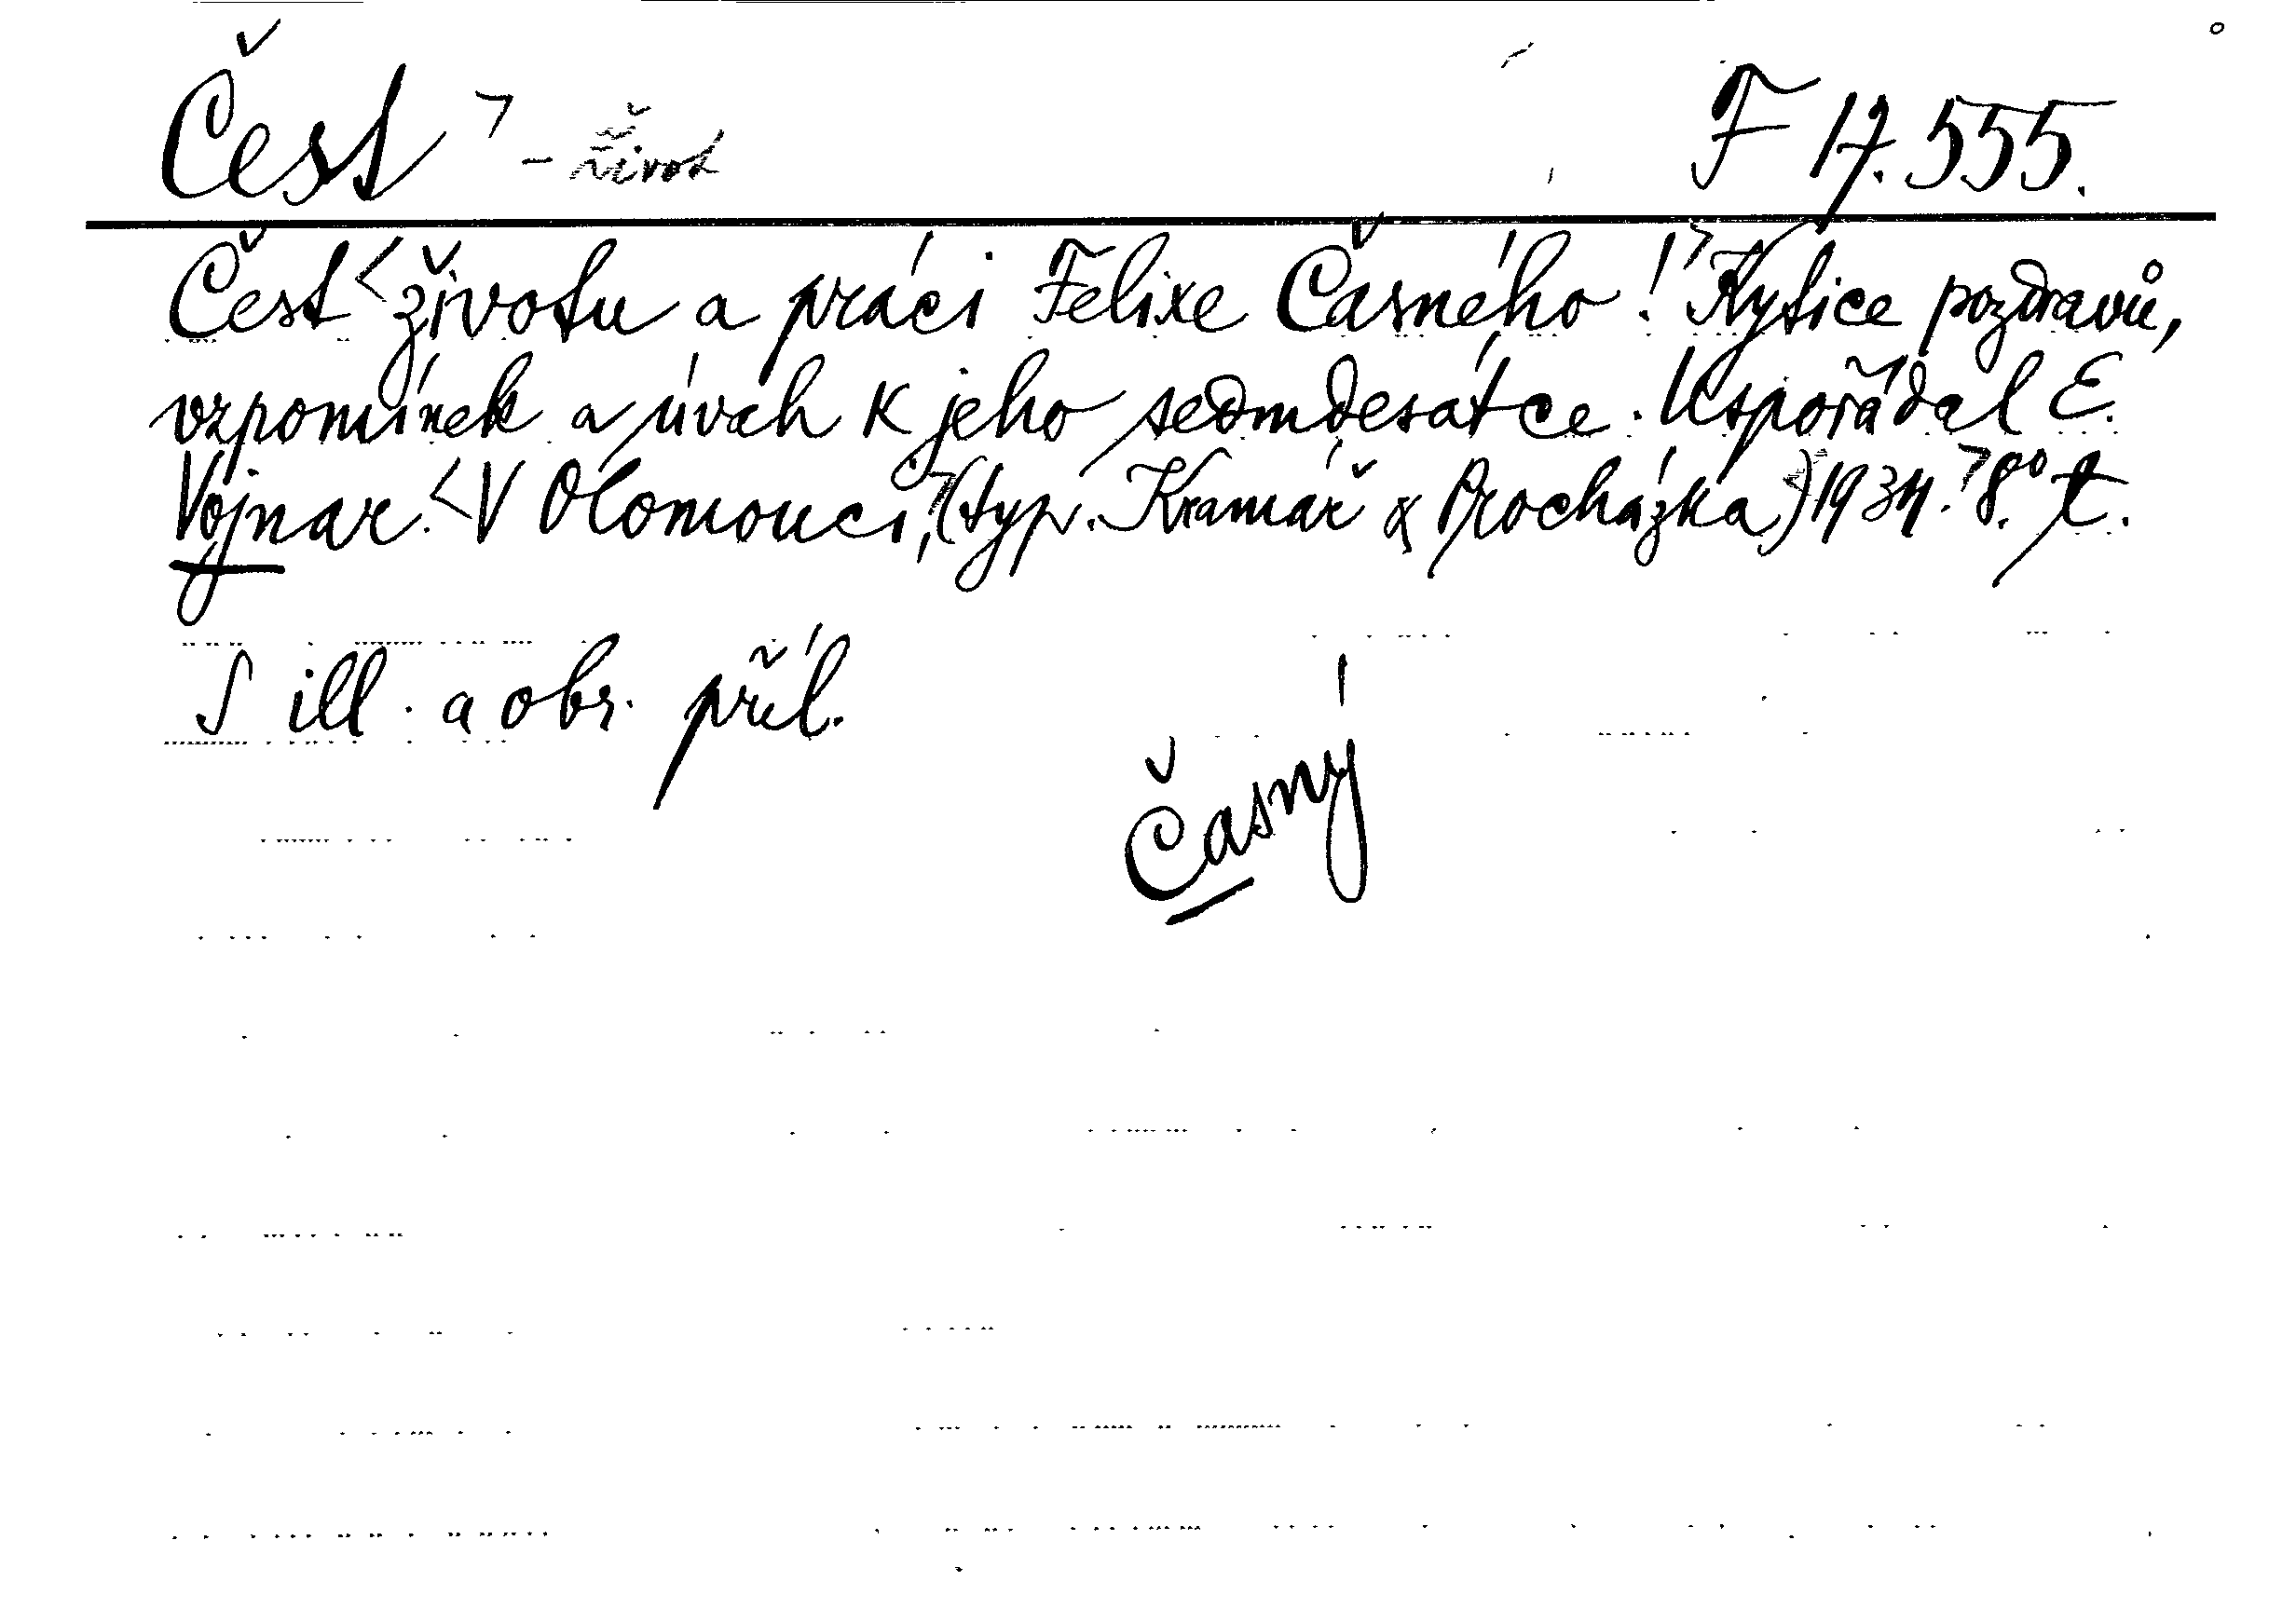 Čest - život F 17.555.
Čest životu a práci Felixe Časného! Kytice pozdravů,
vzpomínek a úvah k jeho sedmdesátce. Uspořádal E.
Vojnar. V Olomouci, (typ. Kramář & Procházka) 1934. 8° t.
S ill. a obr. příl.
Časný